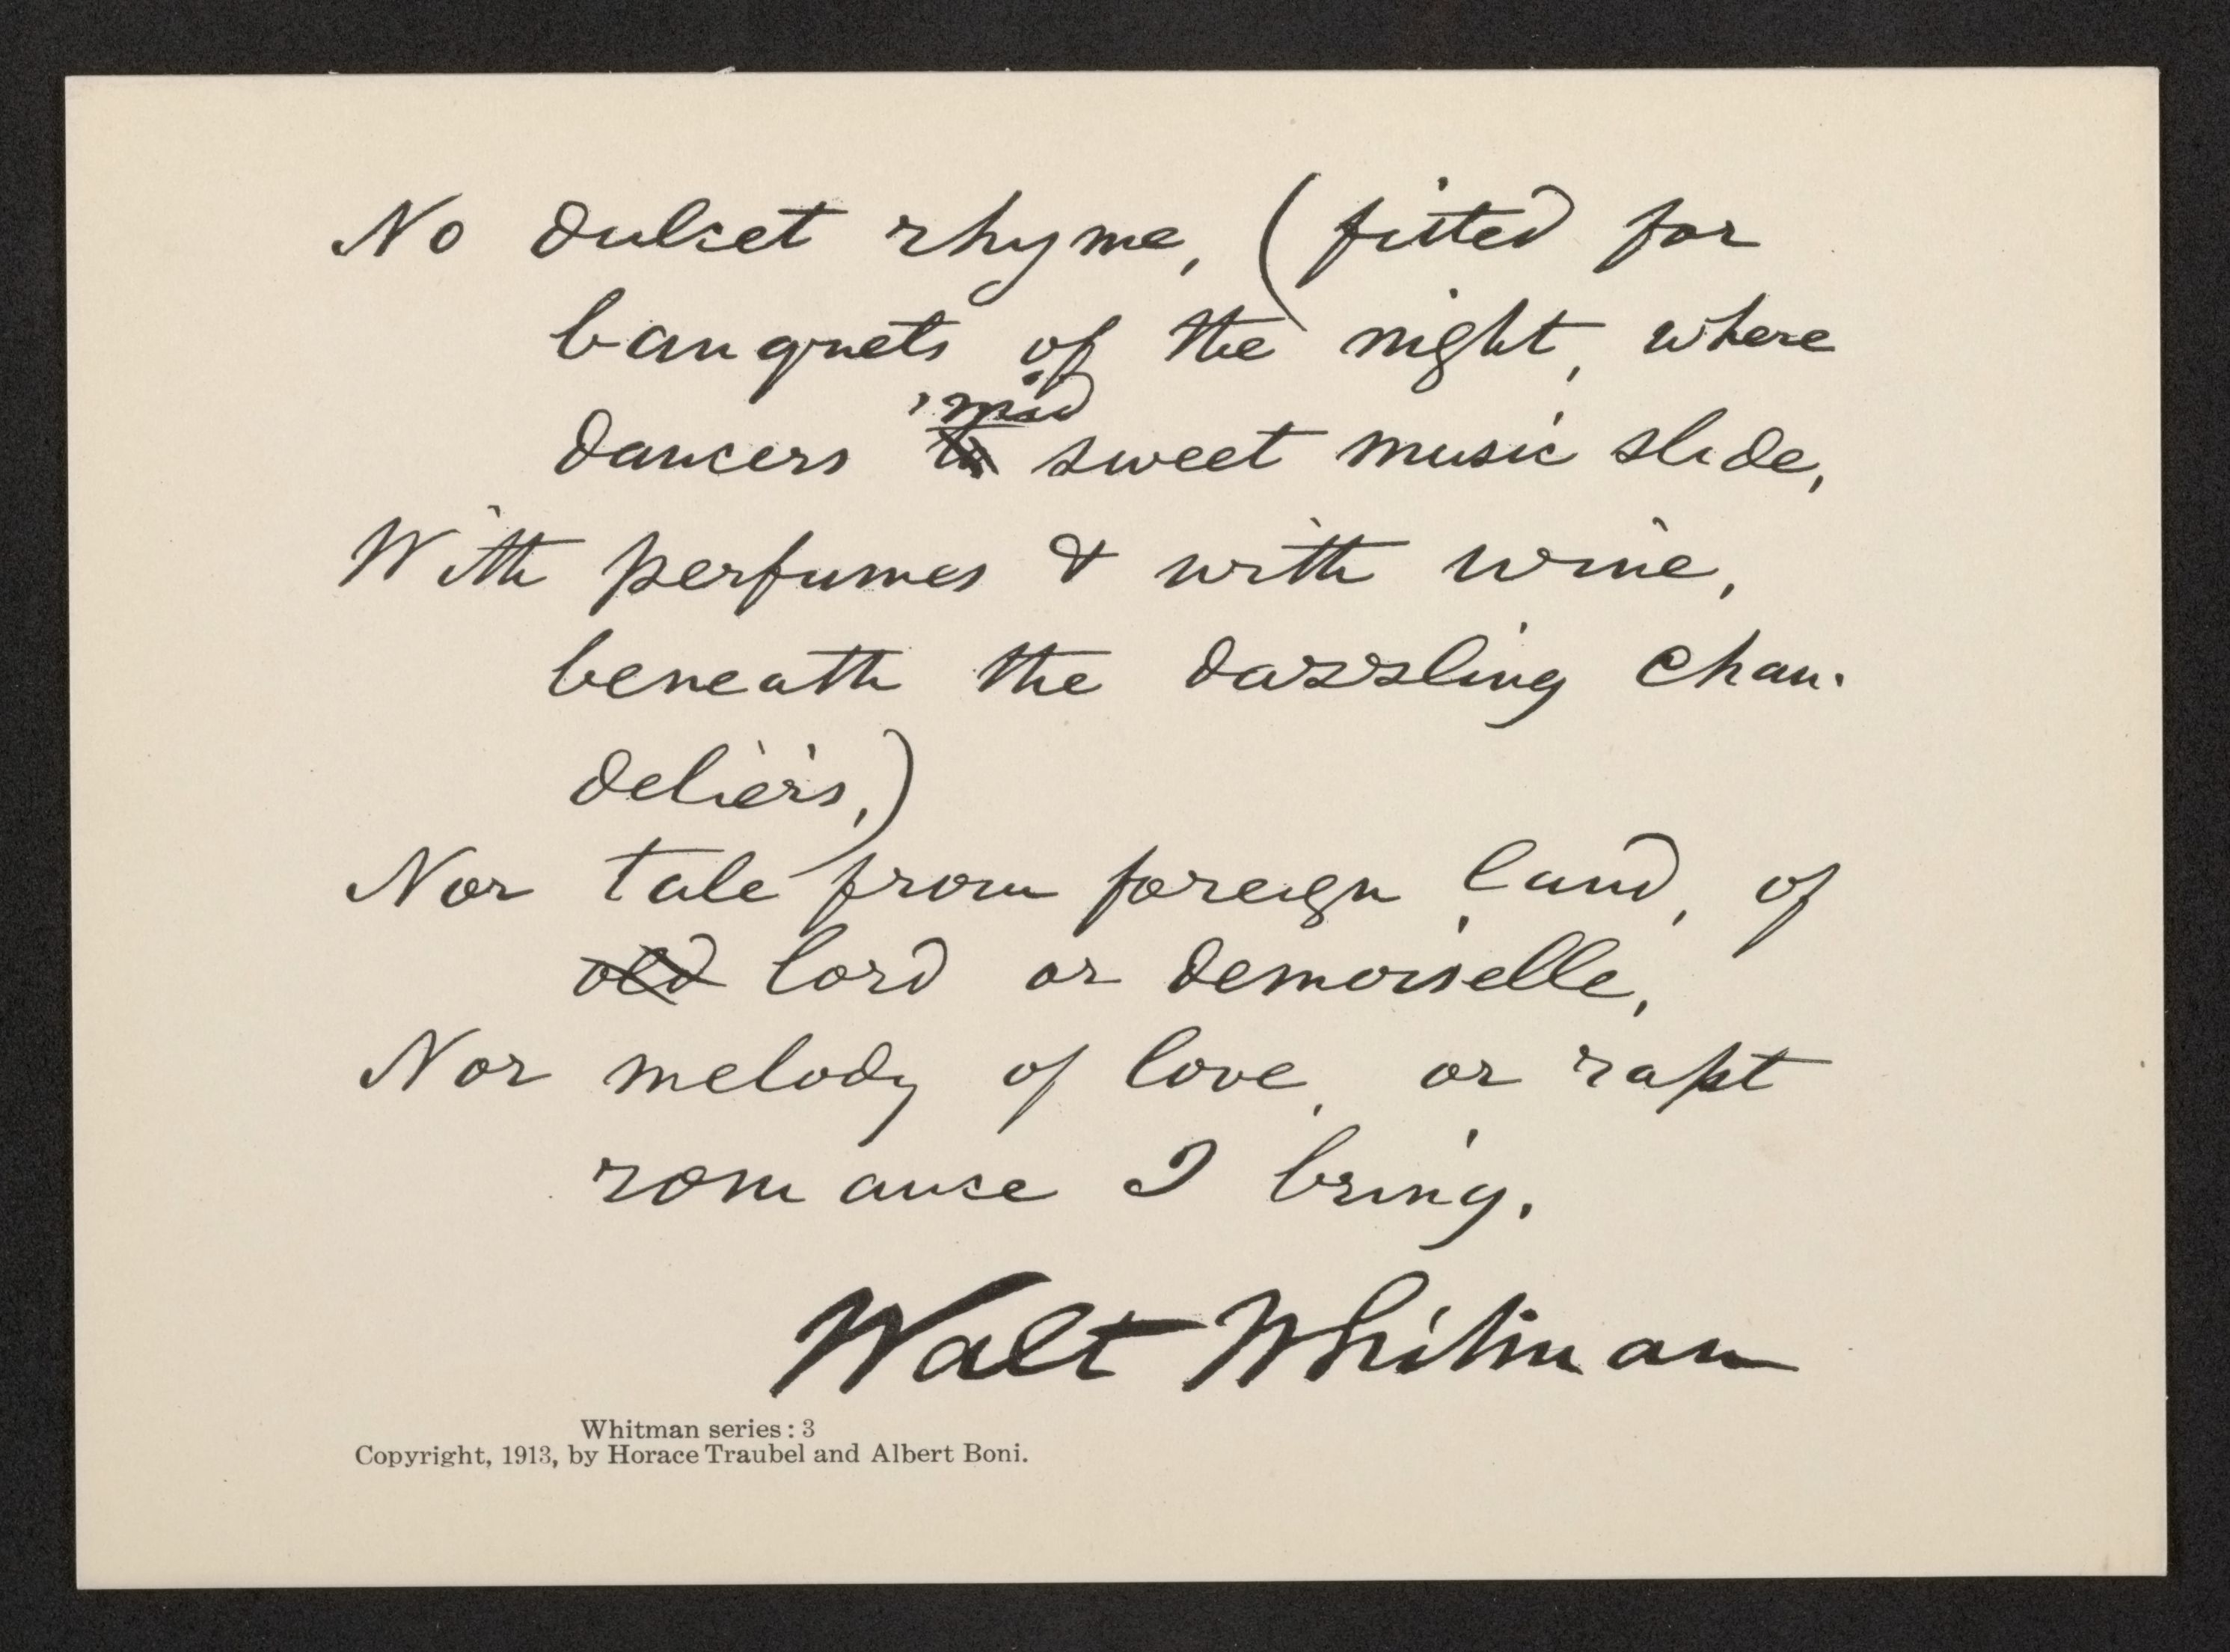 No dulcet rhyme, (fitted for
banquets of the night, where
'mid
dancers to sweet music slide,
With perfumes & with wine,
beneath the dazzling chan-
deliers,)
Nor tale from foreign land, of
old lord or demoiselle,
Nor melody of love, or rapt
romance I bring.
Walt Whitman
Whitman series: 3
Copyright, 1913, by Horace Traubel and Albert Boni.